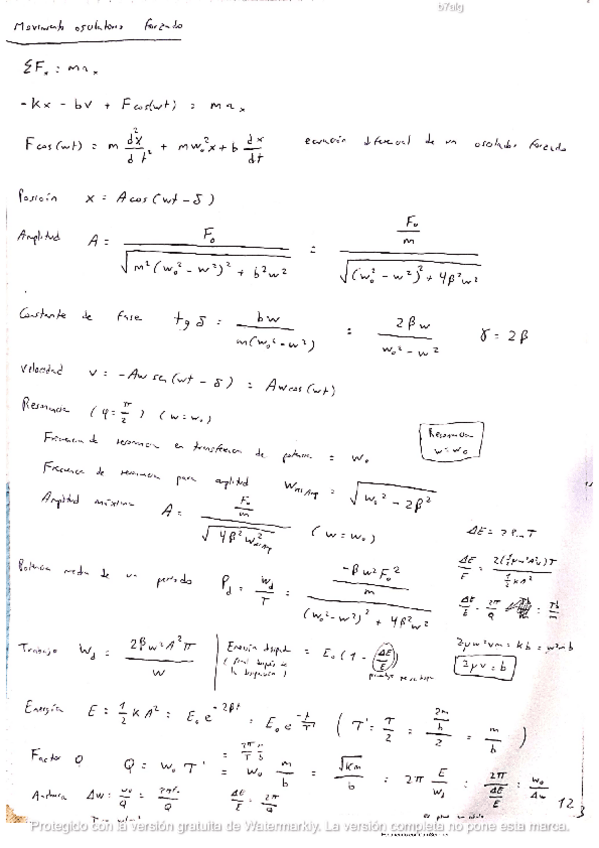 b7alg
Movimiento oscilatorio forzado
ΣFₓ = maₓ
-kx - bv + F cos(wt) = maₓ
F cos(wt) = m d²x/dt² + mw₀²x + b dx/dt ecuación diferencial de un oscilador forzado
Posición x = A cos(wt - δ)
Amplitud A = F₀ / √(m²(w₀² - w²)² + b²w²) = (F₀/m) / √((w₀² - w²)² + 4β²w²)
Constante de fase tg δ = bw / m(w₀² - w²) = 2βw / (w₀² - w²) γ = 2β
Velocidad v = -Aw sen(wt - δ) = Aw cos(wt)
Resonancia (φ = π/2) (w = w₀)
Resonancia w = w₀
Frecuencia de resonancia en transferencia de potencia = w₀
Frecuencia de resonancia para amplitud = √(w₀² - 2β²)
Amplitud máxima A = (F₀/m) / √(4β²w²) (w = w₀)
Potencia media de un periodo P_d = w_d/T = (-βw²F₀²/m) / ((w₀² - w²)² + 4β²w²)
Trabajo W_d = 2βw²A²π / w
Energía = E₀(1 - ΔE/E)
2μv = b
Energía E = 1/2 kA² = E₀e^(-2βt) = E₀e^(-t/T') (T' = T/2 = (2m/b)/2 = m/b)
Factor Q Q = w₀T' = w₀ m/b = √(km)/b = 2π E/W_d = 2π/(ΔE/E) = w₀/Δw
Anchura Δw = w₀/Q ΔE/E = 2π/Q
12
Protegido con la versión gratuita de Watermarkly. La versión completa no pone esta marca.